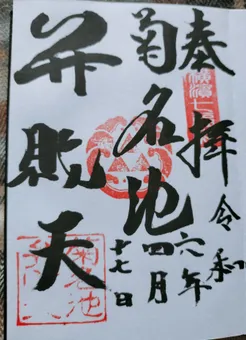 奉拝
令和
六年
四月
十七日
菊名池
弁財天
横濱七
菊名池